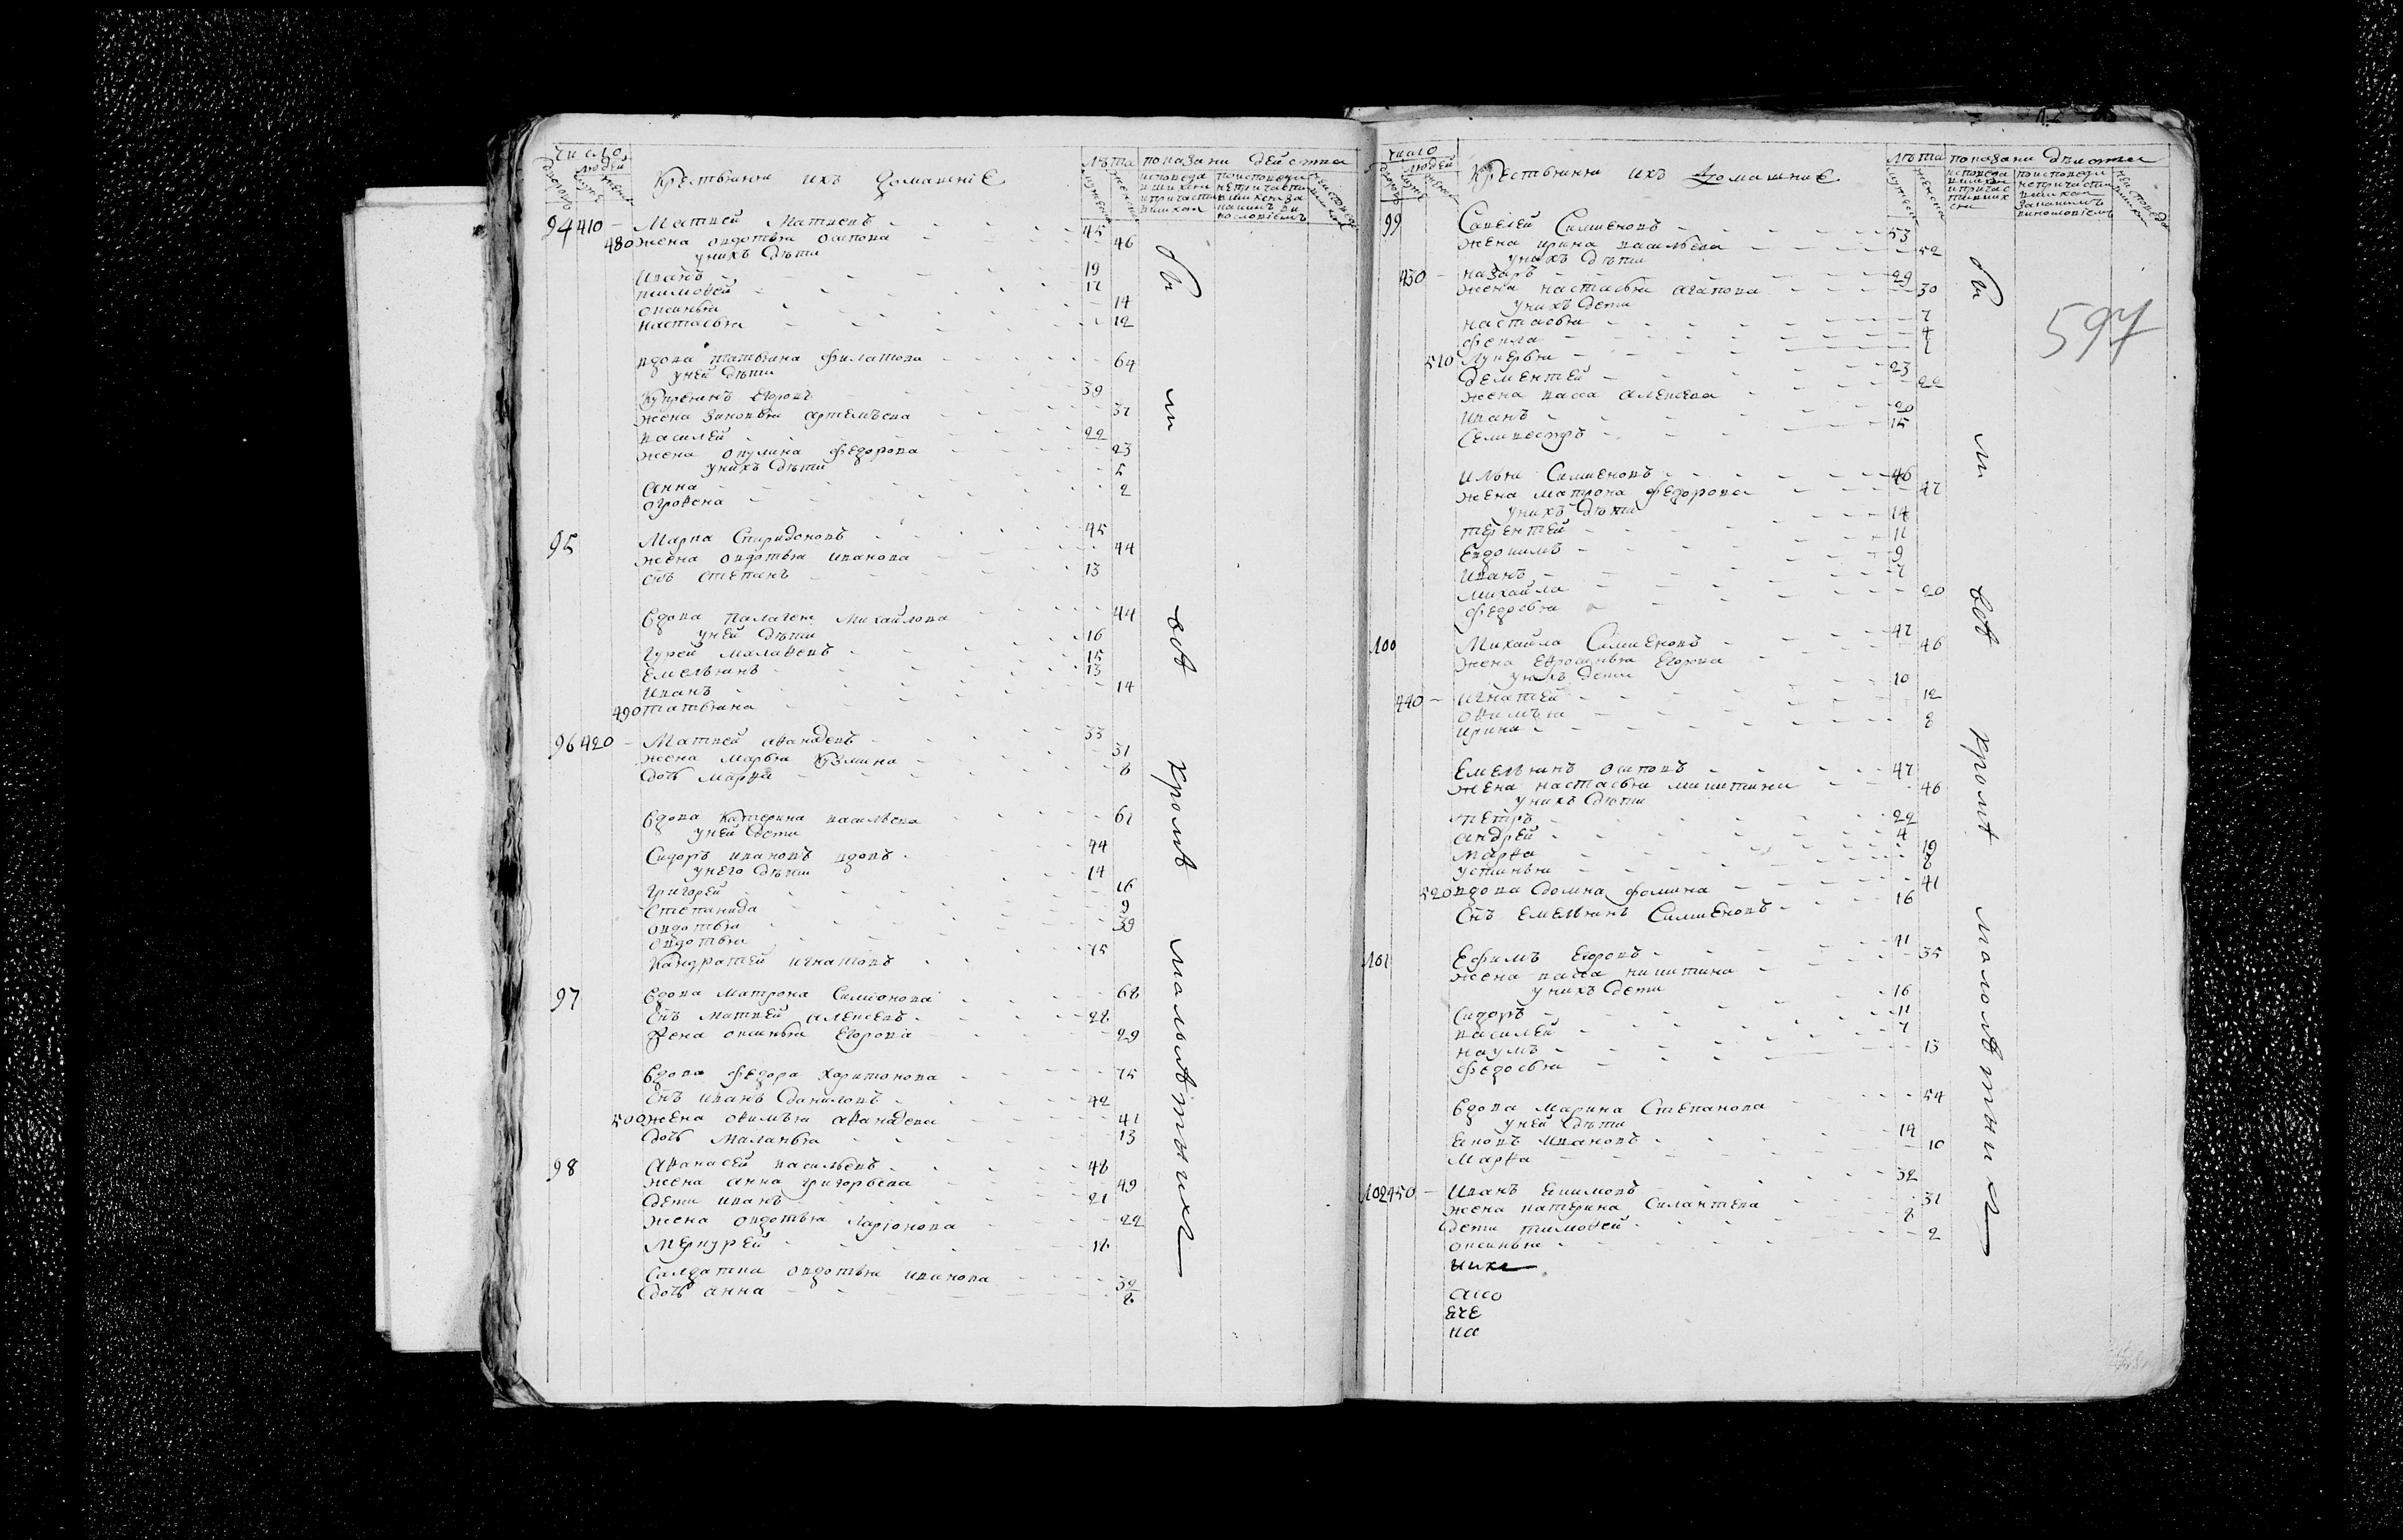 число
людей
дворовъ
мужеска
женска
Крестьянѣ ихъ домашнiе
лѣта
мужеска
женска
показани действа
94 410 Матвей Матвеевъ 45
480 жена овдотья осипова 46
у нихъ дѣти
Иванъ 19
тимоѳей 17
оксинья 14
настасья 12
вдова татьяна филатова 64
у ней дѣти
Купреянъ Егоровъ 39
жена Зиновья артемьева 37
василей 22
жена окулина федорова 23
у нихъ дѣти
анна 5
огроѳена 2
95 Марка Спиридоновъ 45
жена овдотья иванова 44
снъ степанъ 13
вдова палагея михайлова 44
у ней дѣти
гурей малаѳевъ 16
Емельянъ 15
иванъ 13
490 татьяна 14
96 420 Матвей аѳанасевъ 33
жена марья Кузмина 31
дочь марѳа 8
вдова катерина васильева 61
у ней дети
Сидоръ ивановъ вдовъ 44
у него дѣти
григорей 14
степанида 16
овдотья 9
овдотья 39
Кандратей игнатовъ 75
97 вдова матрона Симионова 68
снъ матвей алексеевъ 28
жена оксинья Егорова 29
вдова федора харитонова 75
снъ иванъ даниловъ 42
500 жена оѳимья аѳанасева 41
дочь маланья 13
98 Аѳанасей васильевъ 48
жена анна григорьева 49
дети иванъ 21
жена овдотья ларiонова 22
меркурей 18
салдатка овдотья иванова 32
дочь анна 8
бы ли всѣ кромѣ малолѣтнихъ
число
людей
дворовъ
мужеска
женска
Крестьянѣ ихъ домашние
лѣта
мужеска
женска
показани дѣйства
597
99 Савелей Симионовъ 53
жена ирина васильева 52
у нихъ дѣти
430 назаръ 29
жена настасья агапова 30
у нихъ дети
настасья 7
фекла 4
510 Лукерья 1
дементей 23
жена васса алексеева 22
иванъ 20
Селивестръ 15
илья Симионовъ 46
жена матрона федорова 47
у нихъ дѣти
терентей 14
Евдокимъ 11
иванъ 9
михайла 7
федосья 20
100 Михайла Симионовъ 47
жена Еѳросинья Егорова 46
у нихъ дети
440 игнатей 10
оѳимья 12
ирина 8
Емельянъ осиповъ 47
жена настасья микитина 46
у нихъ дѣти
петръ 22
андрей 4
марѳа 19
устинья 8
520 вдова домна фомина 41
снъ емельянъ Симионовъ 16
101 Ефимъ Егоровъ 41
жена васса никитина 35
у нихъ дети
Сидоръ 16
василей 11
наумъ 7
федосья 13
вдова марина Степанова 54
у ней дѣти
иванъ ивановъ 14
марѳа 10
102 450 Иванъ Екимовъ 32
жена катерина Силантева 31
дети тимоѳей 8
оксинья 2
ниже
аио
ече
на
бы ли всѣ кромѣ малолѣтнихъ